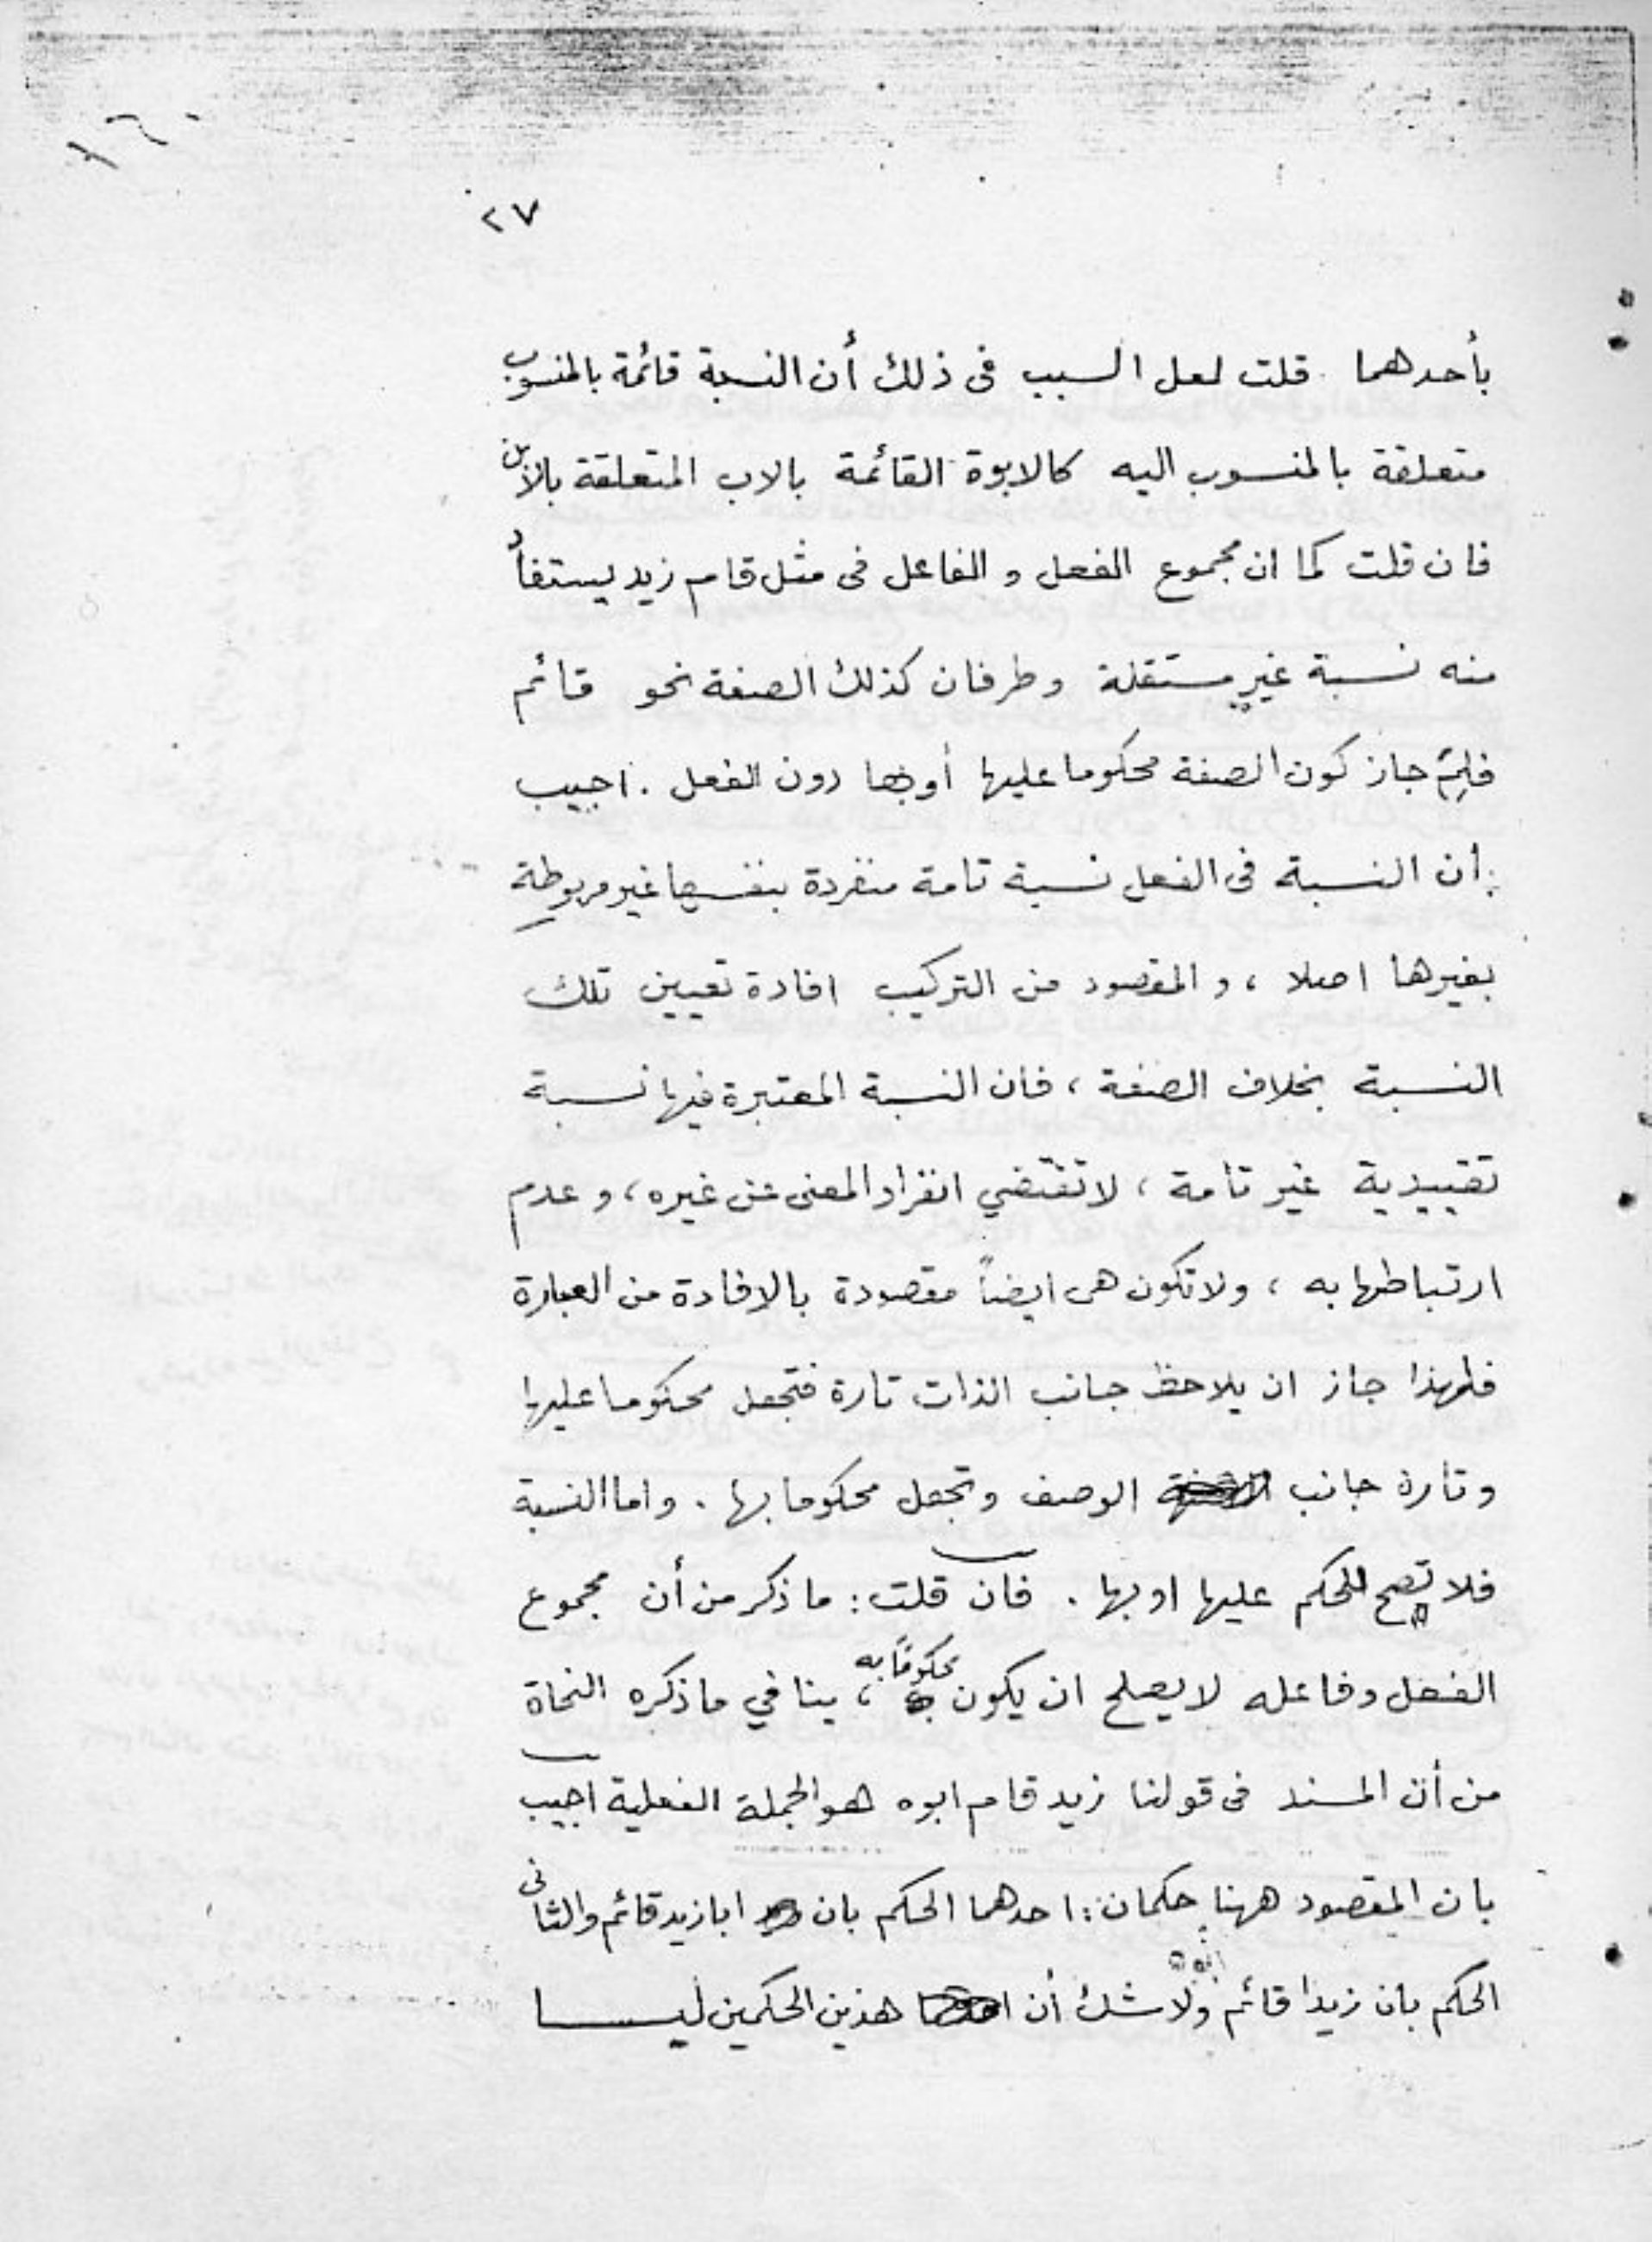 ١٦٠
٢٧
بأحدهما . قلت لعل السبب فى ذلك أن النسبة قائمة بالمنسوب
متعلقة بالمنسوب اليه كالابوة القائمة بالاب المتعلقة بالابن
فان قلت كما ان مجموع الفعل و الفاعل فى مثل قام زيد يستفاد
منه نسبة غير مستقلة وطرفان كذلك الصفة نحو قائم
فلِمَ جاز كون الصفة محكوما عليها أوبها دون الفعل . اجيب
أن النسبة فى الفعل نسبة تامة منفردة بنفسها غير مربوطة
بغيرها اصلا ، و المقصود من التركيب افادة تعيين تلك
النسبة بخلاف الصفة ، فان النسبة المعتبرة فيها نسبة
تقييدية غير تامة ، لا تقتضي انفراد المعنى عن غيره ، و عدم
ارتباطها به ، ولا تكون هى ايضاً مقصودة بالافادة من العبارة
فلهذا جاز ان يلاحظ جانب الذات تارة فتجعل محكوما عليها
وتارة جانب الوصف وتجعل محكوما بها . واما النسبة
فلا تصح للحكم عليها اوبها . فان قلت : ما ذكر من أن مجموع
الفعل وفاعله لا يصلح ان يكون محكوماً به ، ينافي ما ذكره النحاة
من أن المسند فى قولنا زيد قام ابوه هو الجملة الفعلية اجيب
بان المقصود ههنا حكمان : احدهما الحكم بان ابا زيد قائم والثانى
الحكم بان زيدا قائم ابوه ولا شك أن هذين الحكمين ليسا